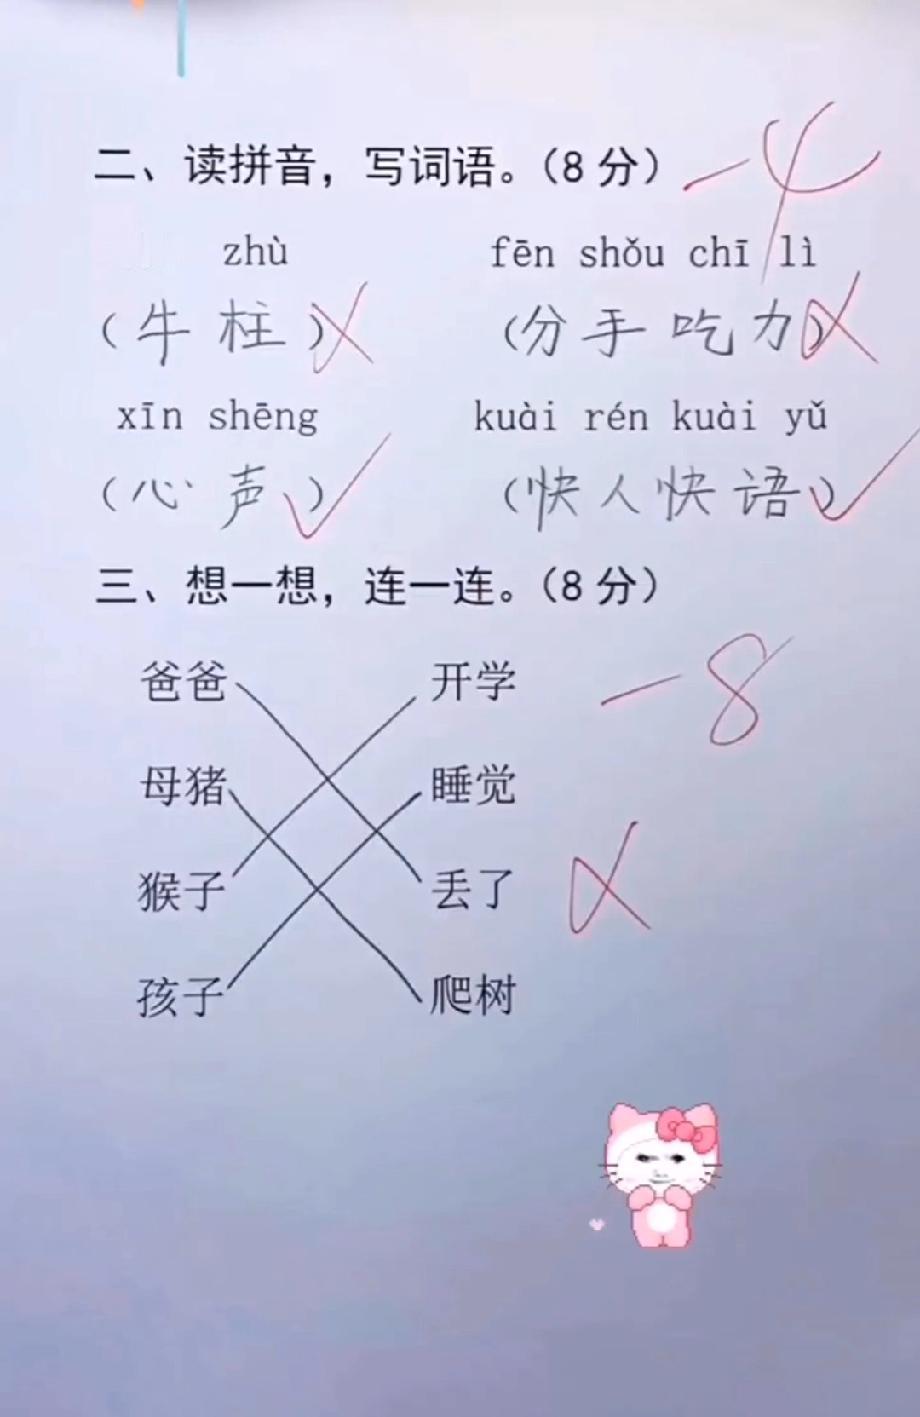 二、读拼音，写词语。（8 分） -4
zhù fēn shǒu chī lì
（牛 柱） （分 手 吃 力）
xīn shēng kuài rén kuài yǔ
（心 声） （快 人 快 语）
三、想一想，连一连。（8 分）
爸爸 开学 -8
母猪 睡觉
猴子 丢了
孩子 爬树